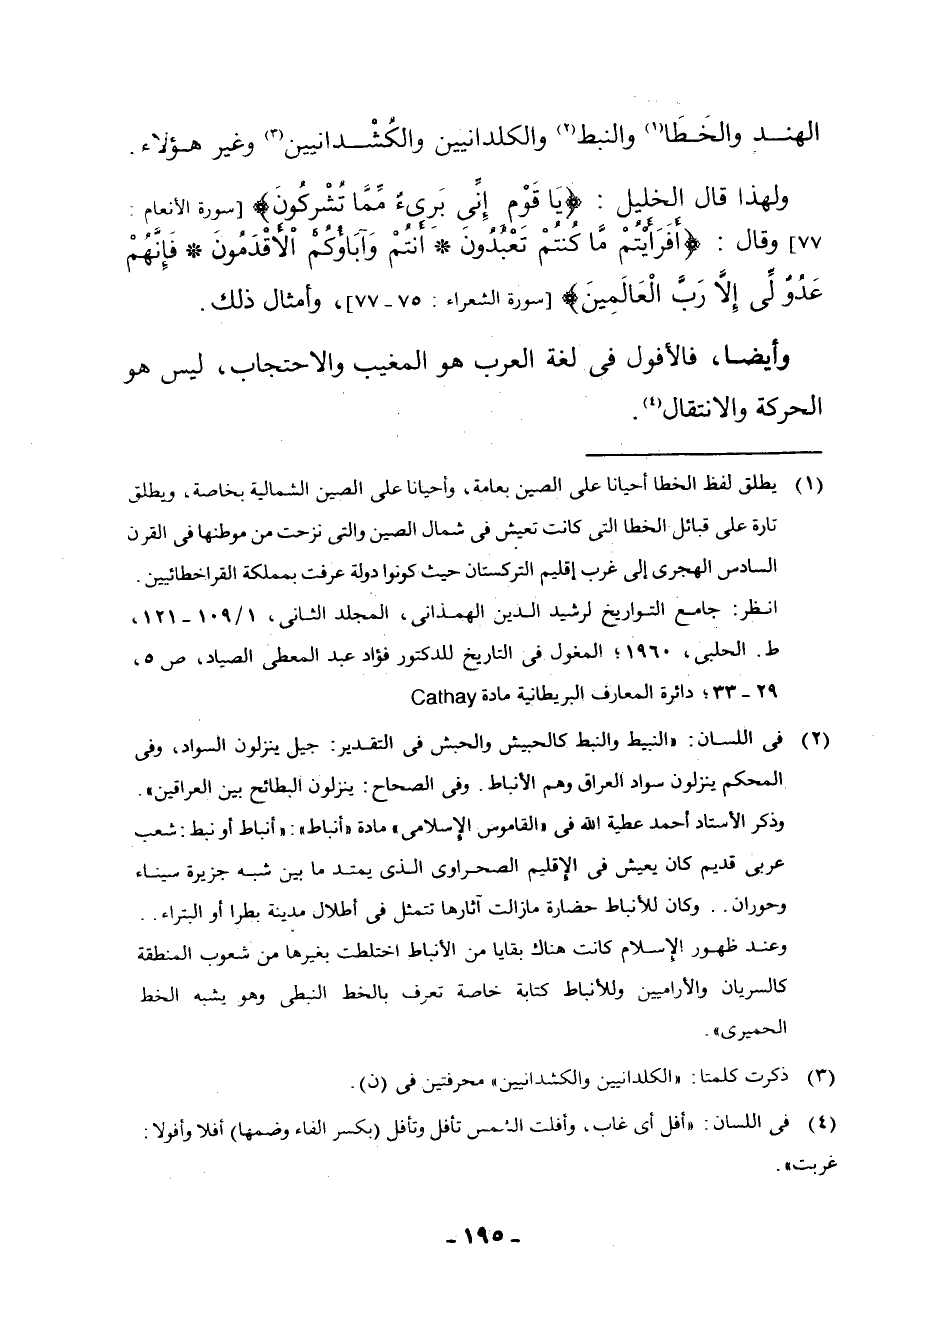 الهنـد والخَطَا(١) والنبط(٢) والكلدانيين والكُشْـدانيين(٣) وغير هـؤلاء .
ولهذا قال الخليل : ﴿يَا قَوْمِ إِنِّى بَرِىءٌ مِّمَّا تُشْرِكُونَ﴾ [سورة الأنعام :
٧٧] وقال : ﴿أَفَرَأَيْتُمْ مَّا كُنتُمْ تَعْبُدُونَ * أَنتُمْ وَآبَاؤُكُمُ الْأَقْدَمُونَ * فَإِنَّهُمْ
عَدُوٌّ لِّى إِلَّا رَبَّ الْعَالَمِينَ﴾ [سورة الشعراء : ٧٥ - ٧٧]، وأمثال ذلك .
وأيضـا، فالأفول فى لغة العرب هو المغيب والاحتجاب، ليس هو
الحركة والانتقال(٤).
(١) يطلق لفظ الخطا أحيانا على الصين بعامة، وأحيانا على الصين الشمالية بخاصة، ويطلق
تارة على قبائل الخطا التى كانت تعيش فى شمال الصين والتى نزحت من موطنها فى القرن
السادس الهجرى إلى غرب إقليم التركستان حيث كونوا دولة عرفت بمملكة القراخطائيين .
انـظر: جامع التـواريخ لرشيد الـدين الهمـذانى، المجلد الثـانى، ١٠٩/١ - ١٢١،
ط. الحلبى، ١٩٦٠؛ المغول فى التاريخ للدكتور فؤاد عبد المعطى الصياد، ص ٥،
٢٩ - ٣٣؛ دائرة المعارف البريطانية مادة Cathay
(٢) فى اللسـان: «النبيط والنبط كالحبيش والحبش فى التقدير: جيل ينزلون السواد، وفى
المحكم ينزلون سواد العراق وهم الأنباط. وفى الصحاح: ينزلون البطائح بين العراقين».
وذكر الأستاذ أحمد عطية الله فى «القاموس الإسلامى» مادة «أنباط»: «أنباط أو نبط: شعب
عربى قديم كان يعيش فى الإقليم الصحـراوى الـذى يمتـد ما بين شبـه جزيرة سينـاء
وحوران.. وكان للأنباط حضارة مازالت آثارها تتمثل فى أطلال مدينة بطرا أو البتراء..
وعنـد ظهـور الإسلام كانت هناك بقايا من الأنباط اختلطت بغيرها من شعوب المنطقة
كالسريان والأراميين وللأنباط كتابة خاصة تعرف بالخط النبطى وهو يشبه الخط
الحميرى».
(٣) ذكرت كلمتا: «الكلدانيين والكشدانيين» محرفتين فى (ن).
(٤) فى اللسان: «أفل أى غاب، وأفلت الشمس تأفل وتأفل (بكسر الفاء وضمها) أفلا وأفولا:
غربت».
- ١٩٥ -